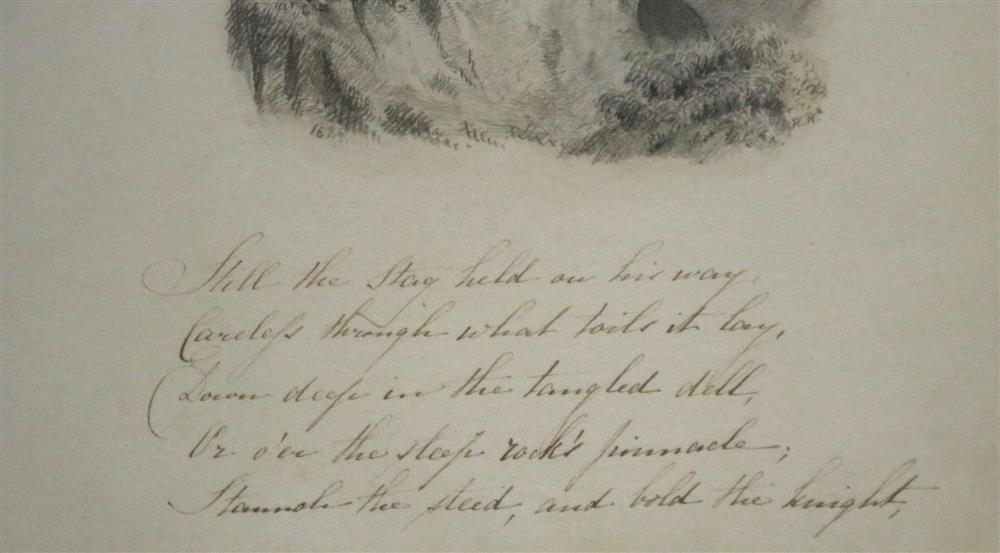 Still the stag held on his way,
Careless through what toils it lay,
Down deep in the tangled dell,
Or o'er the steep rock's pinnacle;
Staunch the steed, and bold the knight,